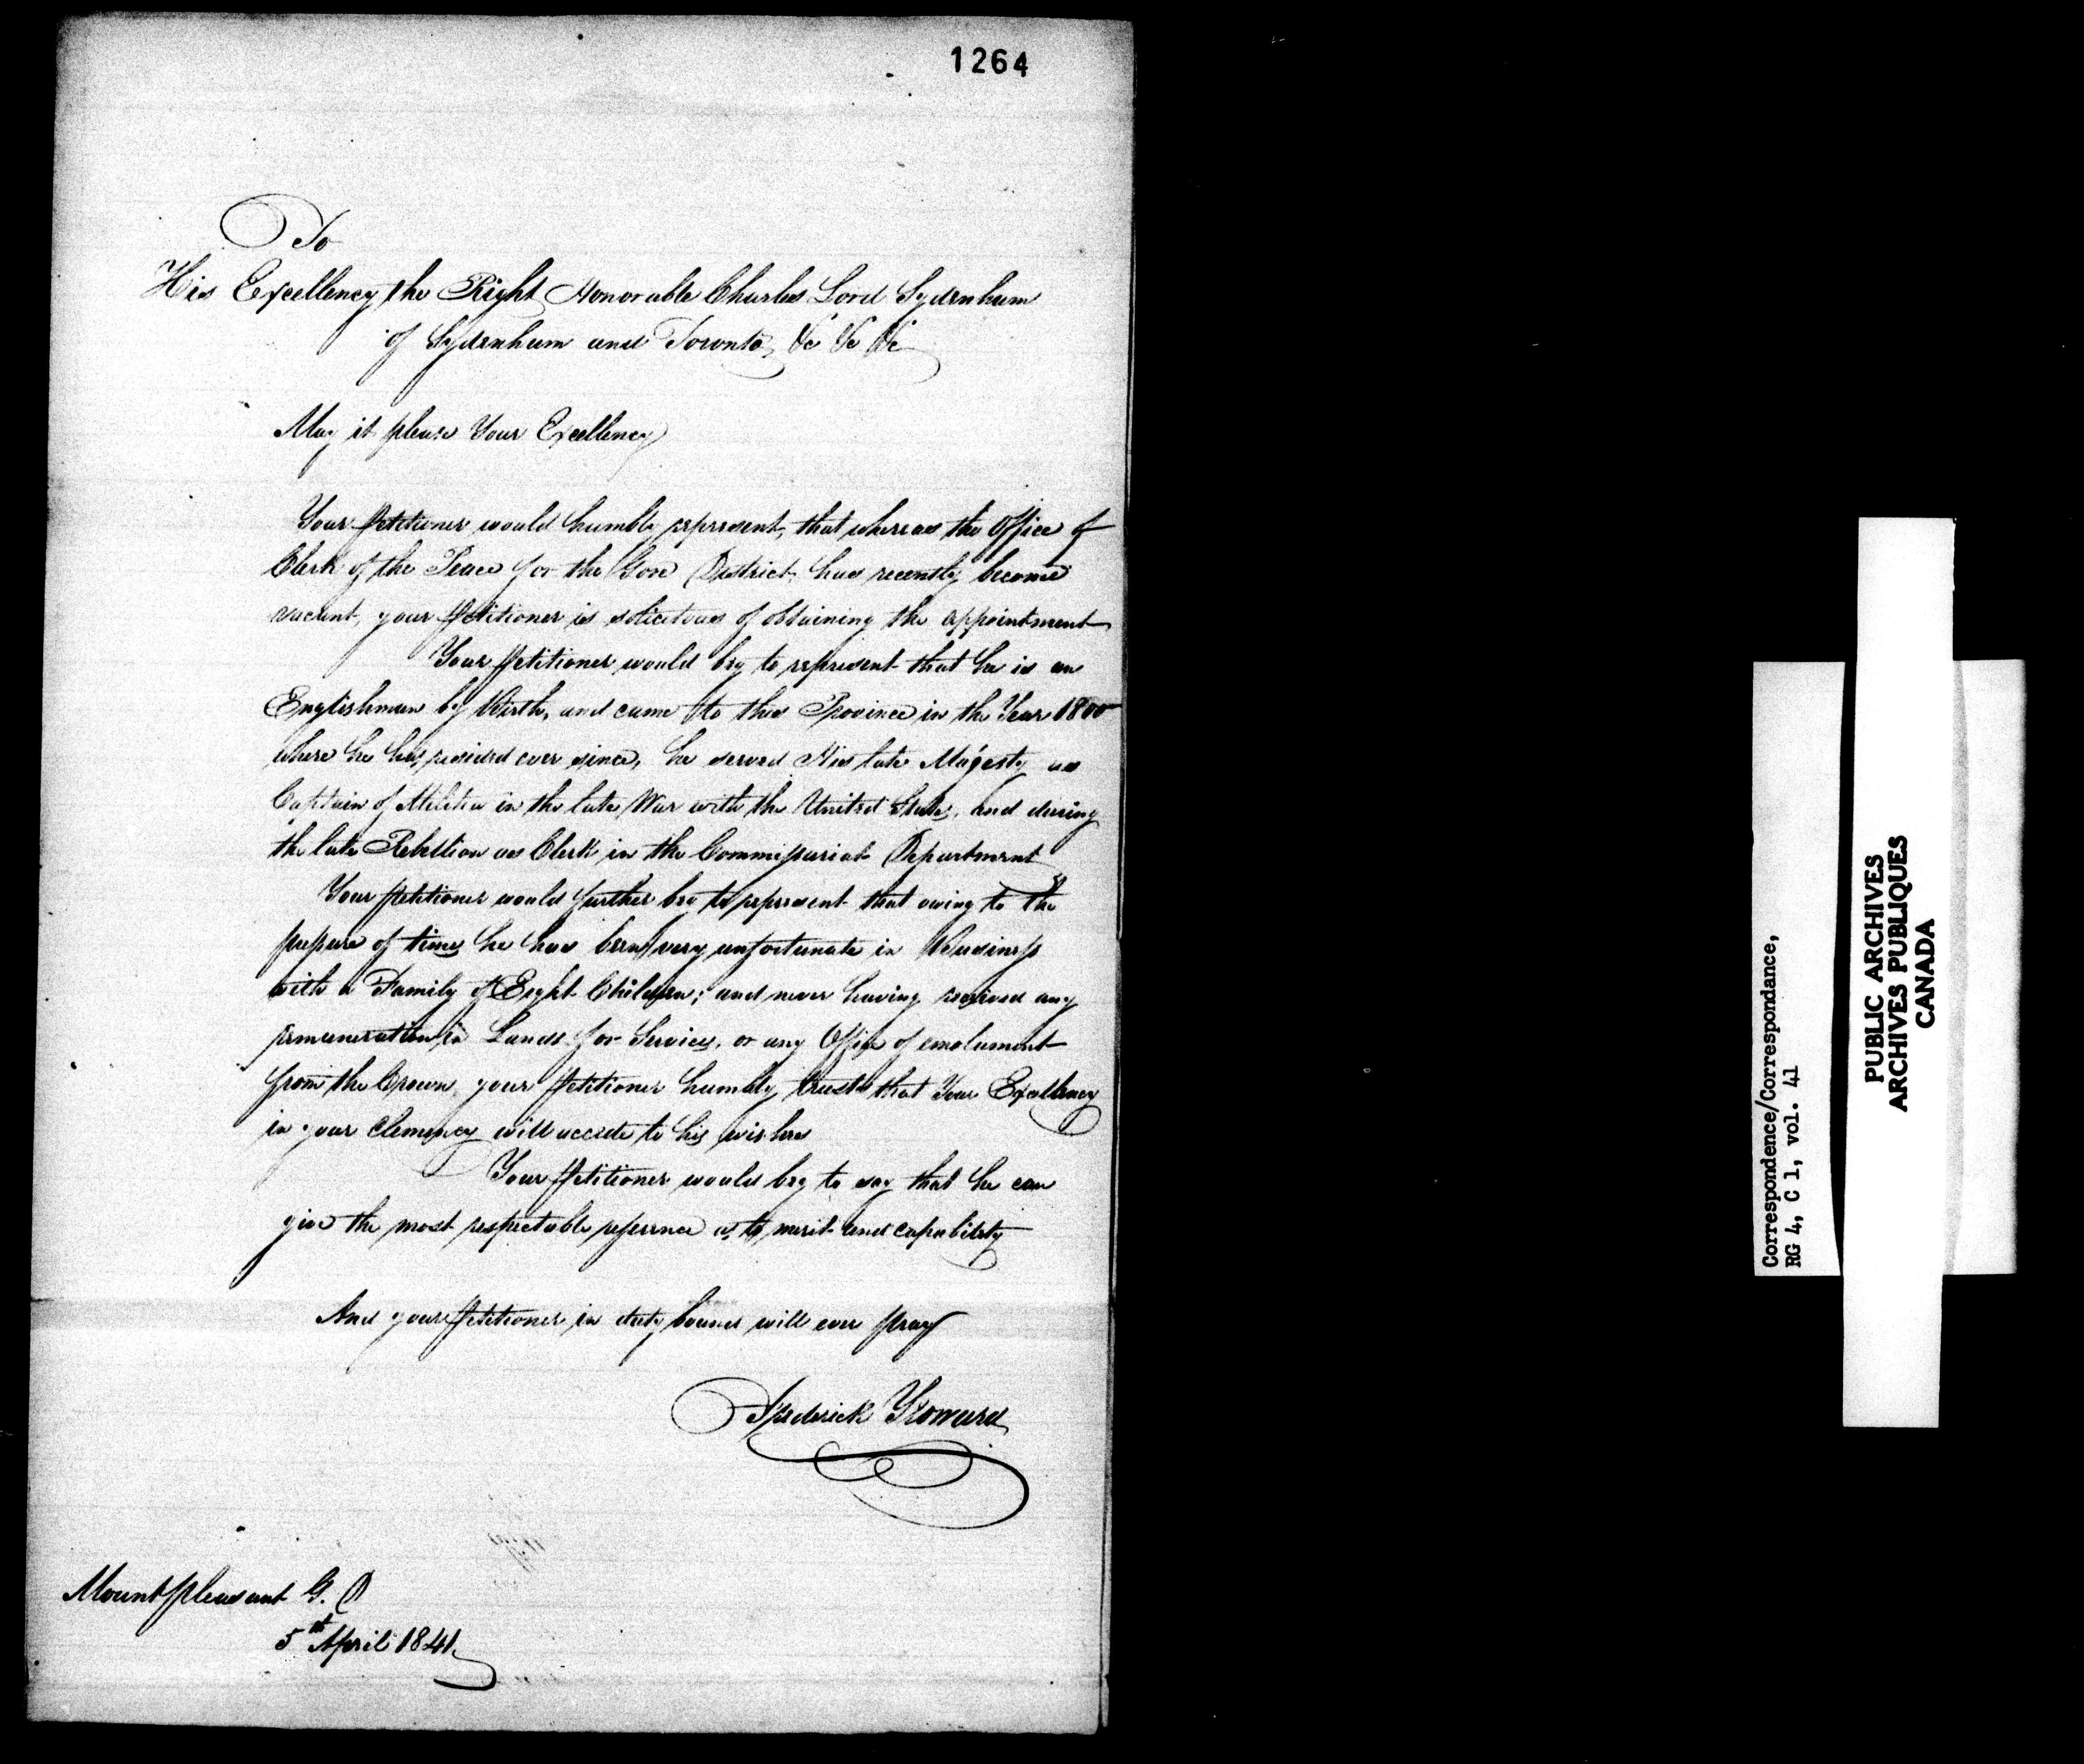 1264
To
His Excellency the Right Honorable Charles Lord Sydenham
of Sydenham and Toronto, &c &c &c
May it please Your Excellency
Your Petitioner would humbly represent, that whereas the Office of
Clerk of the Peace for the Gore District, has recently become
vacant, your Petitioner is solicitous of obtaining the appointment
Your Petitioner would beg to represent that he is an
Englishman by Birth, and came to this Province in the Year 1800
where he has resided ever since, he served His late Majesty as
Captain of Militia in the late War with the United States, and during
the late Rebellion as Clerk in the Commissariat Department
Your Petitioner would further beg to represent that owing to the
pressure of times he has been very unfortunate in Business
with a Family of Eight Children; and never having received any
remuneration in Lands for Services, or any Office of emolument
from the Crown, your Petitioner humbly trusts that Your Excellency
in your Clemency will accede to his wishes
Your Petitioner would beg to say that he can
give the most respectable reference as to merit and capability
And your Petitioner in duty bound will ever pray
Frederick Howard
Mountpleasant G. D
5th April 1841
Correspondence/Correspondance,
RG 4, C 1, vol. 41
PUBLIC ARCHIVES
ARCHIVES PUBLIQUES
CANADA